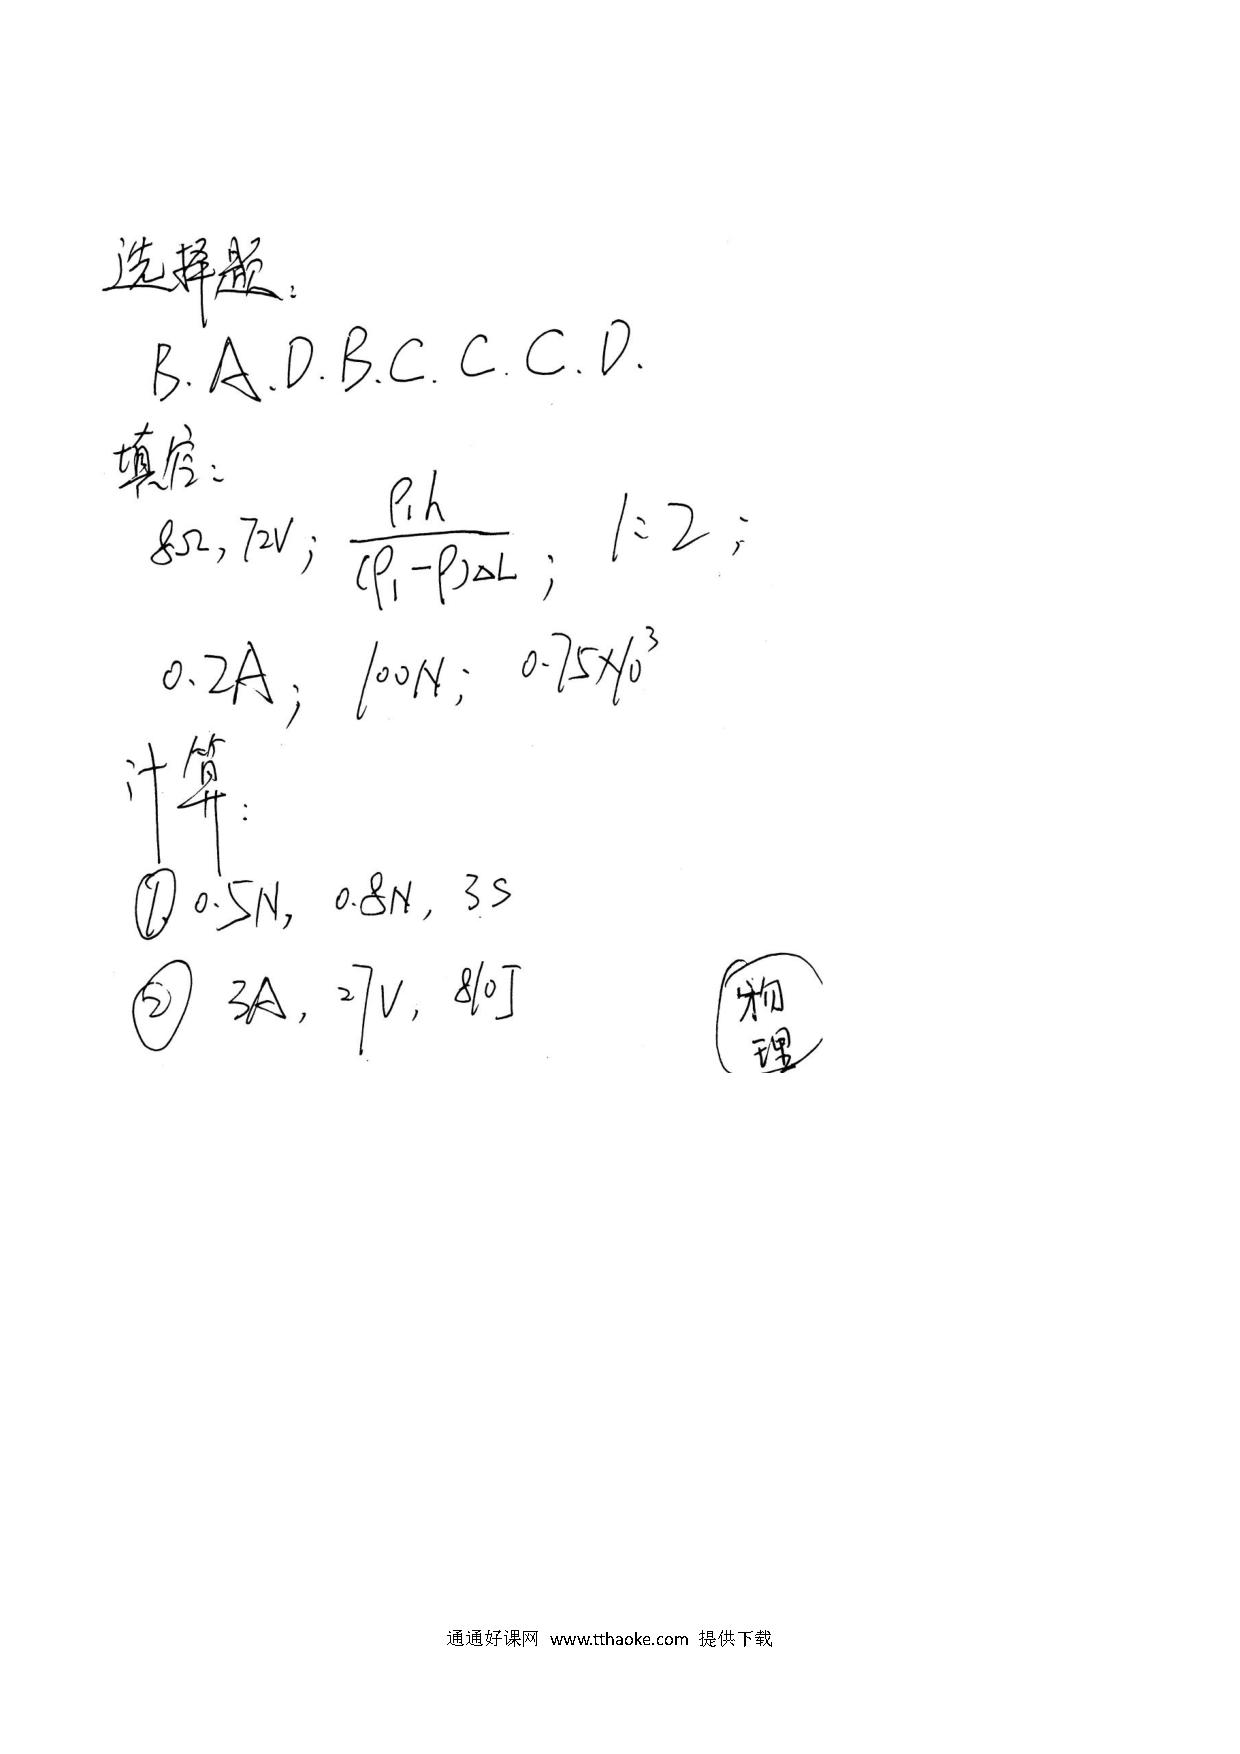 选择题:
B. A. D. B. C. C. C. D.
填空:
8Ω, 72V; ρ₁h/(ρ₁-ρ)ΔL; 1:2;
0.2A; 100N; 0.75×10³
计算:
① 0.5N, 0.8N, 3S
② 3A, 27V, 810J
物理
通通好课网 www.tthaoke.com 提供下载